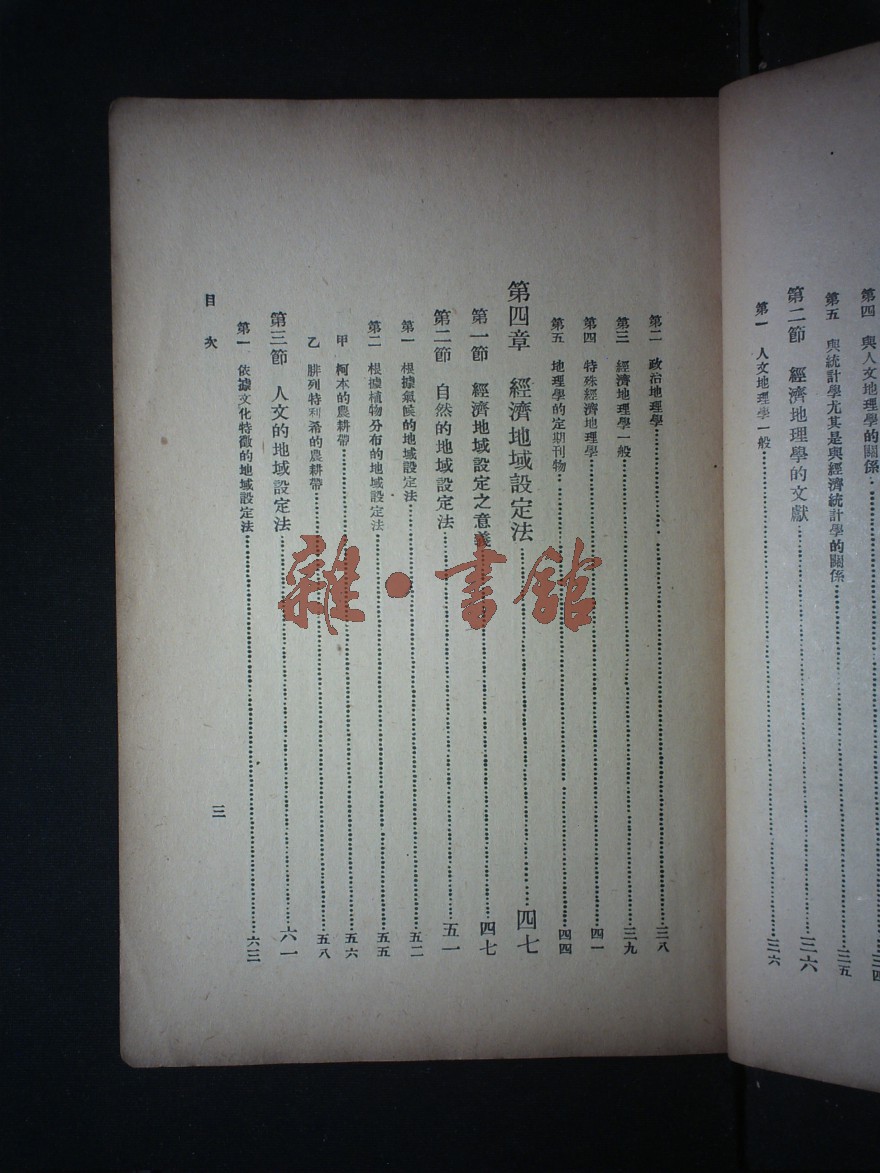 第四　與人文地理學的關係……三四
第五　與統計學尤其是與經濟統計學的關係……三五
第二節　經濟地理學的文獻……三六
第一　人文地理學一般……三六
第二　政治地理學……三八
第三　經濟地理學一般……三九
第四　特殊經濟地理學……四一
第五　地理學的定期刊物……四四
第四章　經濟地域設定法……四七
第一節　經濟地域設定之意義……四七
第二節　自然的地域設定法……五一
第一　根據氣候的地域設定法……五二
第二　根據植物分布的地域設定法……五五
甲　柯本的農耕帶……五六
乙　腓列特利希的農耕帶……五八
第三節　人文的地域設定法……六一
第一　依據文化特徵的地域設定法……六三
目次
三
雜·書館